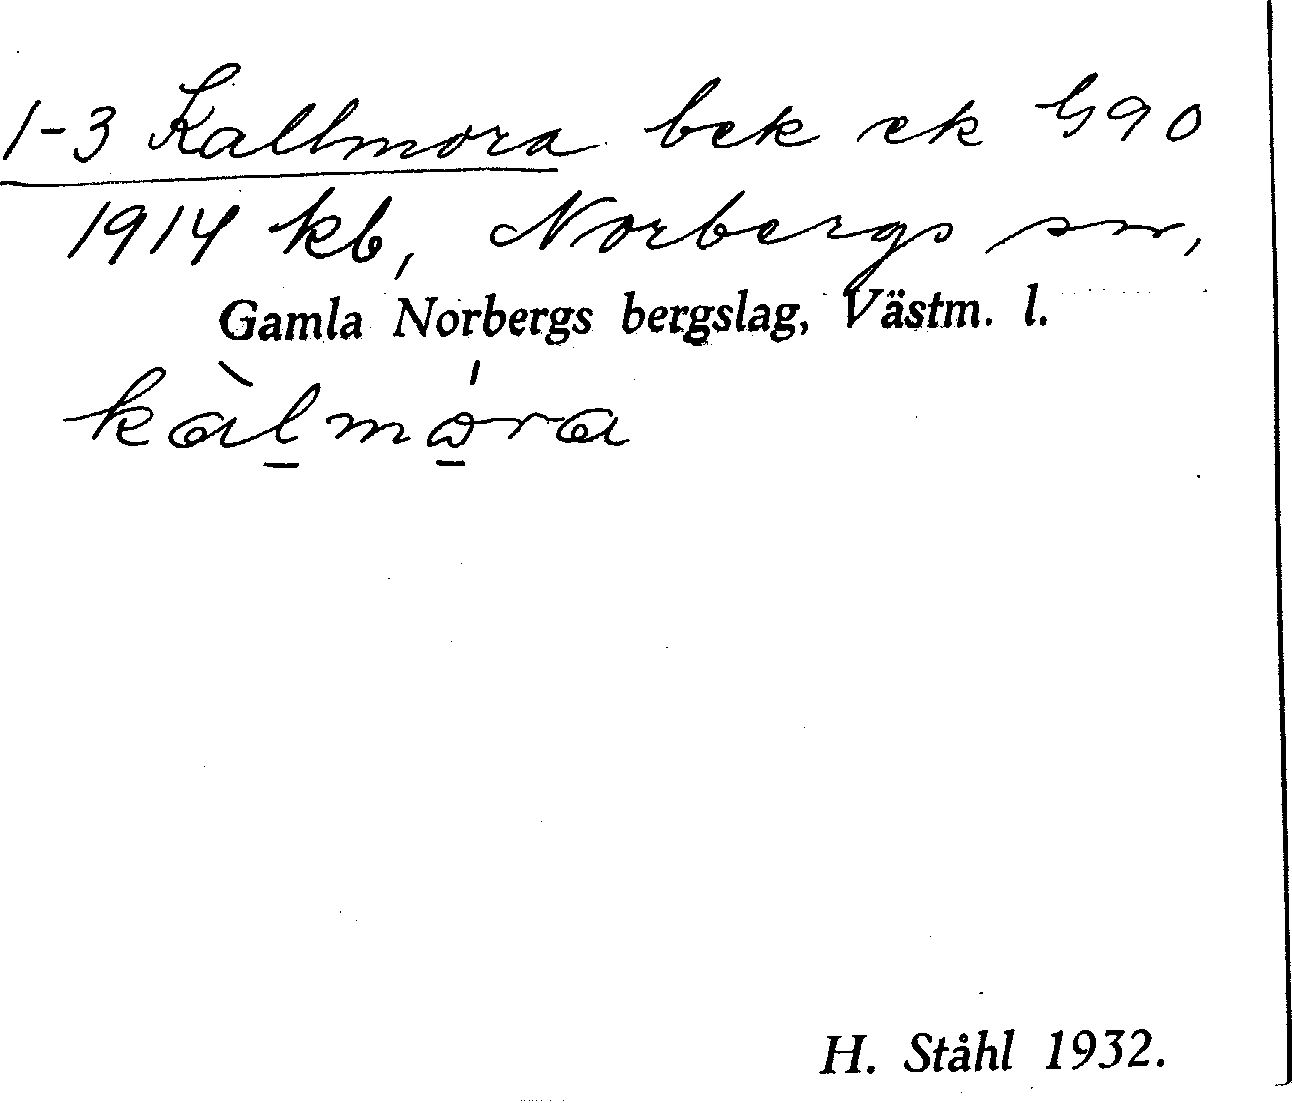 1-3 Kallmora bek ek G90
1914 kb, Norbergs sn,
Gamla Norbergs bergslag, Västm. l.
kàl̠mó̠ra
H. Ståhl 1932.